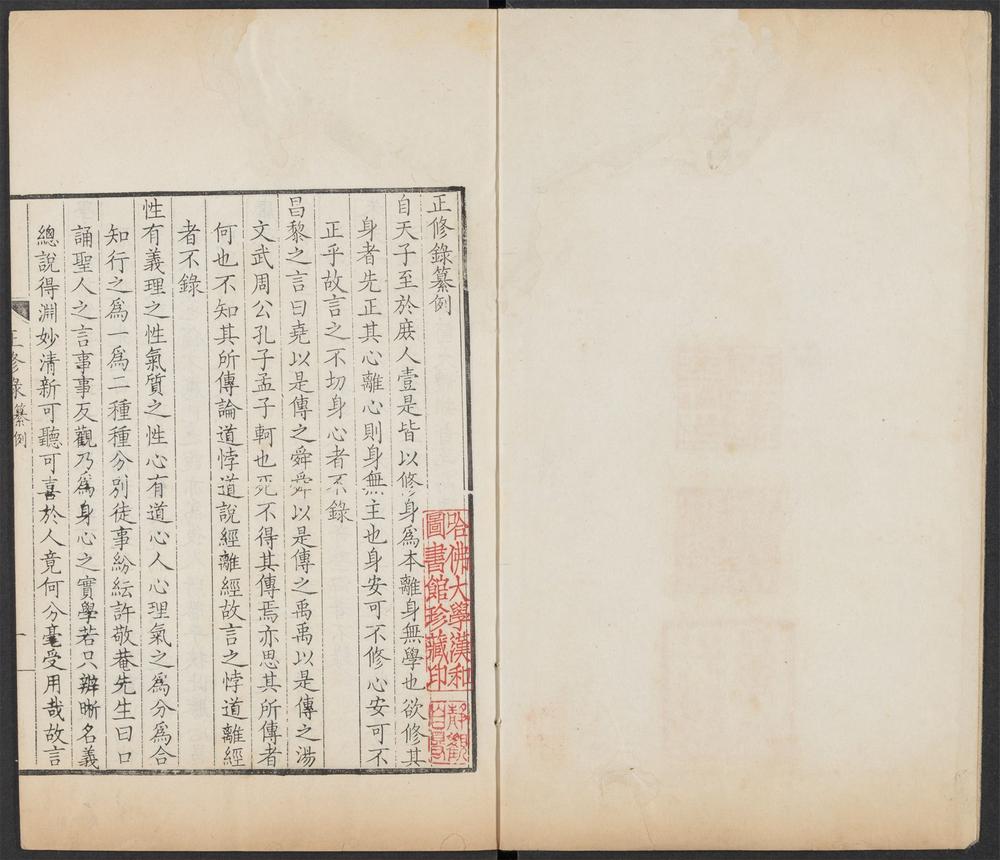 正修錄纂例
自天子至於庶人壹是皆以修身爲本離身無學也欲修其
身者先正其心離心則身無主也身安可不修心安可不
正乎故言之不切身心者不錄
昌黎之言曰堯以是傳之舜舜以是傳之禹禹以是傳之湯
文武周公孔子孟子軻也死不得其傳焉亦思其所傳者
何也不知其所傳論道悖道說經離經故言之悖道離經
者不錄
性有義理之性氣質之性心有道心人心理氣之爲分爲合
知行之爲一爲二種種分別徒事紛紜許敬菴先生曰口
誦聖人之言事事反觀乃爲身心之實學若只辨晰名義
總說得淵妙清新可聽可喜於人竟何分毫受用哉故言
正修錄 纂例
一
哈佛大學漢和
圖書館珍藏印
靜觀